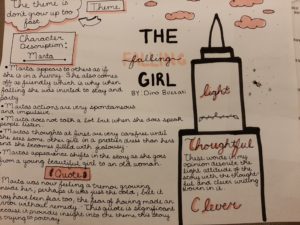 The theme is
don't grow up too
fast
Theme
Character
Description:
Marta
• Marta appears to others as if
she is in a hurry. She also comes
off as friendly which is why when
falling she was invited to stay and
party
• Marta's actions are very spontaneous
and impulsive
• Marta does not talk a lot but when she does speak
people listen
• Marta's thoughts at first are very carefree until
she sees some other girl in a prettier dress than hers
and she becomes filled with jealousy
• Marta's appearance shifts in the story as she goes
from a young beautiful girl to an old woman.
Quote
Marta was now feeling a tremor growing
inside her, perhaps it was just the cold, but it
may have been fear too, the fear of having made an
error without remedy. This quote is significant
because it provides insight into the theme this story
is trying to portray
THE
falling
GIRL
BY: Dino Buzzati
light
Thoughtful
These words in my
opinion describe the
light attitude of the
story with the thought-
ful and clever writing
woven in it.
Clever